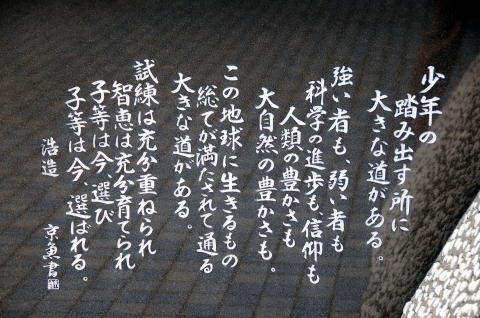 少年の
踏み出す所に
大きな道がある。
強い者も、弱い者も
科学の進歩も、信仰も
人類の豊かさも
大自然の豊かさも。
この地球に生きるもの
総てが満たされて通る
大きな道がある。
試練は充分重ねられ
智恵は充分育てられ
子等は今、選び
子等は今、選ばれる。
浩造
京魚書